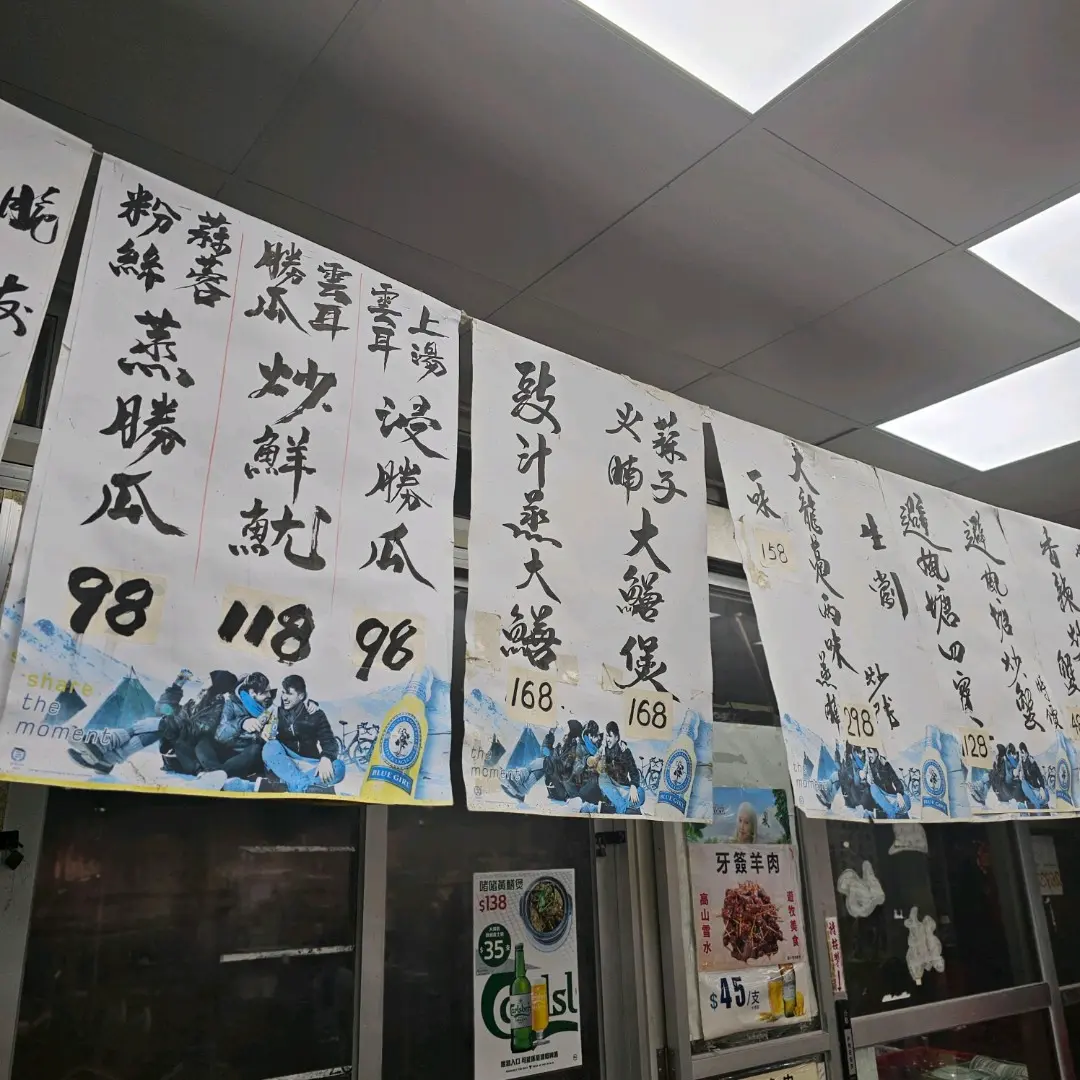 蒜蓉
粉絲
蒸勝瓜
98
雲耳
勝瓜
炒鮮魷
118
上湯
雲耳
浸勝瓜
98
share
the
moment
BLUE GIRL
豉汁蒸大鱔
168
蒜子
火腩
大鱔煲
168
the
moment
BLUE GIRL
一味
158
大龍躉兩味
生劏
298
避風塘四寶
128
避風塘炒蟹
時價
BLUE GIRL
啫啫黃鱔煲
$138
$35
Carlsberg
牙簽羊肉
高山雪水
遊牧美食
$45/支